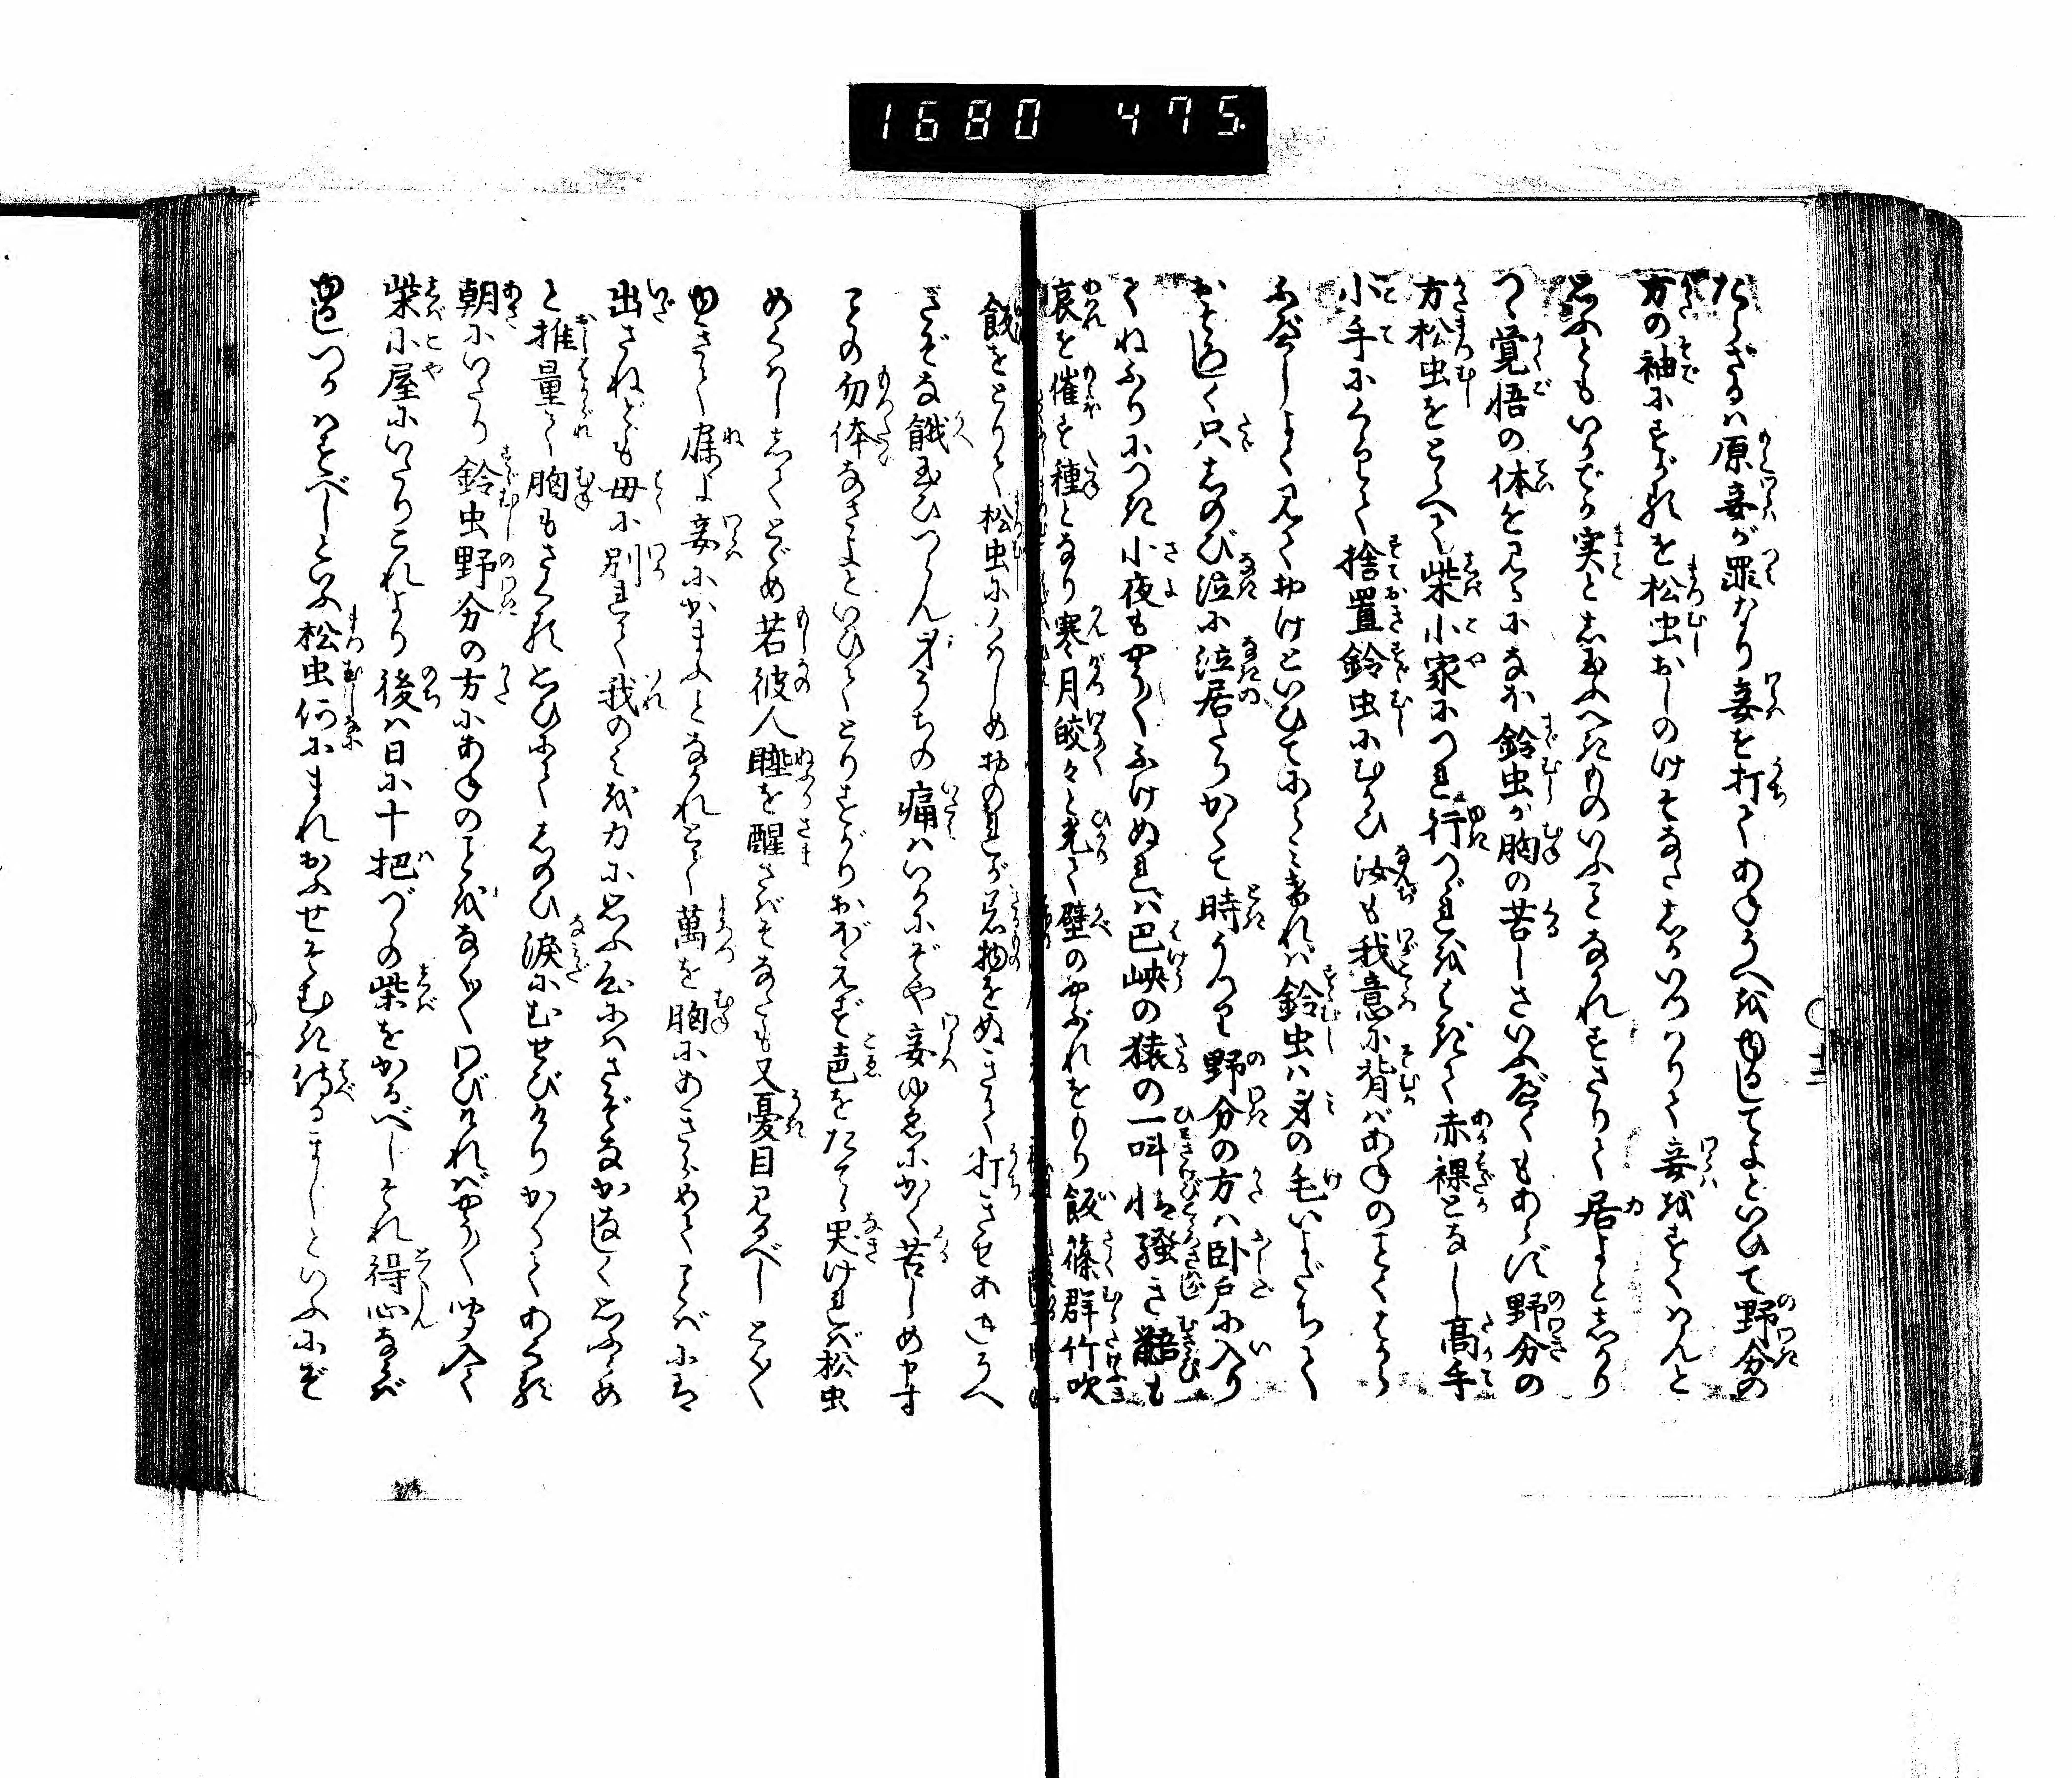 1680 475
たらざるハ原妾が罪なり妾を打てあねうへをゆるしてよといひて野分の
方の袖にすがるを松虫おしのけそなたしかいつはりて妾をすくはんと
思ふともいかでか実と志玉ふべきものいふことなかれすさりて居よとしかり
つゝ覚悟の体を見るになほ鈴虫が胸の苦しさいふべくもあらず野分の
方松虫をとらへて柴小家につれ行つゞれをはぎて赤裸となし高手
小手にくゝりて捨置鈴虫にむかひ汝も我意に背バあねのごとくはから
ふべしよく見ておけといひてにらみければ鈴虫ハ身の毛いよだちて
おそろしく只しのび泣に泣居たりかくて時うつり野分の方ハ卧戸に入り
てねふりにつき小夜もやうやくふけぬれバ巴峡の猿の一叫すさび騒き鼯も
哀を催す種となり寒月皎々と光て壁のやぶれをもり飯篠群竹吹
飯をとりて松虫にくはしめおのれが着物をぬぎて打きせあねうへ
さぞな餓玉ひつらん身うちの痛ハいかにぞや妾ゆゑにかく苦しめ申す
ことの勿体なさよといひてとりすがりおぼえず声をたてゝ哭ければ松虫
めくばしゝてとゞめ若彼人睡を醒さばそなたも又憂目見るべしとくとく
ゆきて寐よ妾にかまふことなかれとて萬を胸にあきらめてことばには
出さねども母に別れて我のみを力に思ふ心にハさぞなかなしく思ふらめ
と推量て胸もさくる思ひにてしのひ涙にむせびけりかくてあくる
朝にいたり鈴虫野分の方にあねのことをなげくわびければやうやく聞入て
柴小屋にいたりこれより後ハ日に十把づゝの柴をかるべしそれ得心ならば
ゆるしつかハすべしといふ松虫何にまれおふせそむき侍るまじといふにぞ